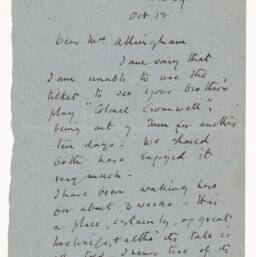 Oct 12
Dear Mrs Allingham
I am sorry that
I am unable to use the
ticket to see your brother's
play "Colonel Cromwell";
being out of Town for another
ten days. We should
both have enjoyed it
very much.
I have been waking here
for about 3 weeks. It is
a place, certainly, of great
loveliness, & altho' its tale is
told, I never tire of its